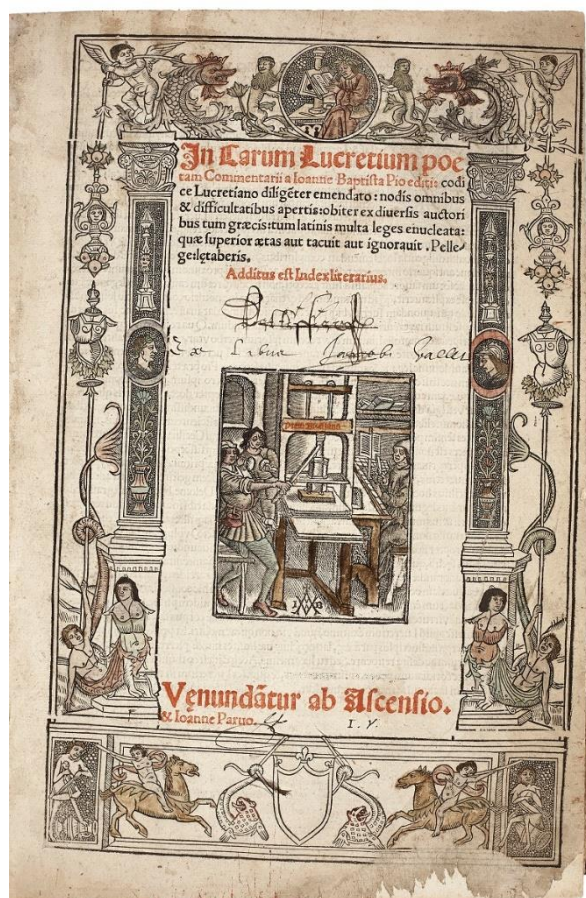 In Carum Lucretium poe
tam Commentarii a Ioanne Baptista Pio editi: codi
ce Lucretiano diligẽter emendato: nodis omnibus
& difficultatibus apertis: obiter ex diuersis auctori
bus tum græcis: tum latinis multa leges enucleata:
quæ superior ætas aut tacuit aut ignorauit. Pelle-
ge: lętaberis.
Additus est Index literarius.
Ex Libris Jacobi
Prelum Ascensianum
Vęnundãtur ab Ascensio.
& Ioanne Paruo.
I. V.